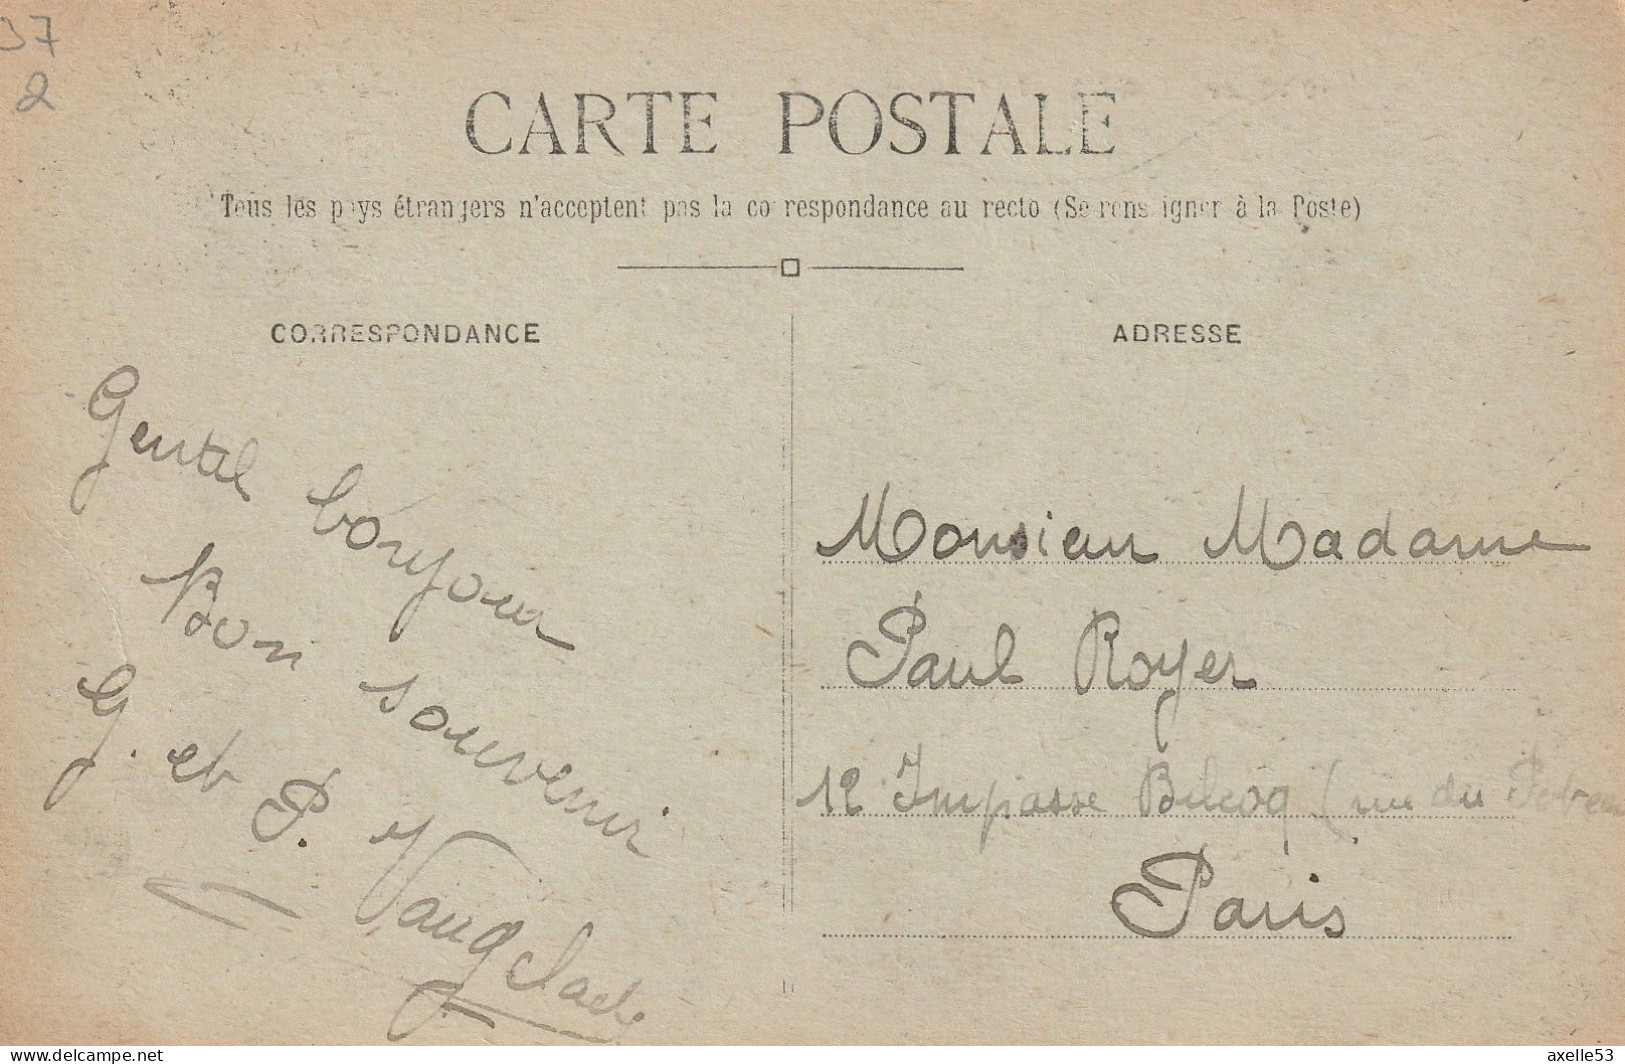 37
2
CARTE POSTALE
Tous les pays étrangers n'acceptent pas la correspondance au recto (Se renseigner à la Poste)
CORRESPONDANCE
Gentil bonjour
Bon souvenir
G. et P. Vaugelade
ADRESSE
Monsieur Madame
Paul Royer
12 Impasse Bilcoq (rue du
Paris
www.delcampe.net
axelle53